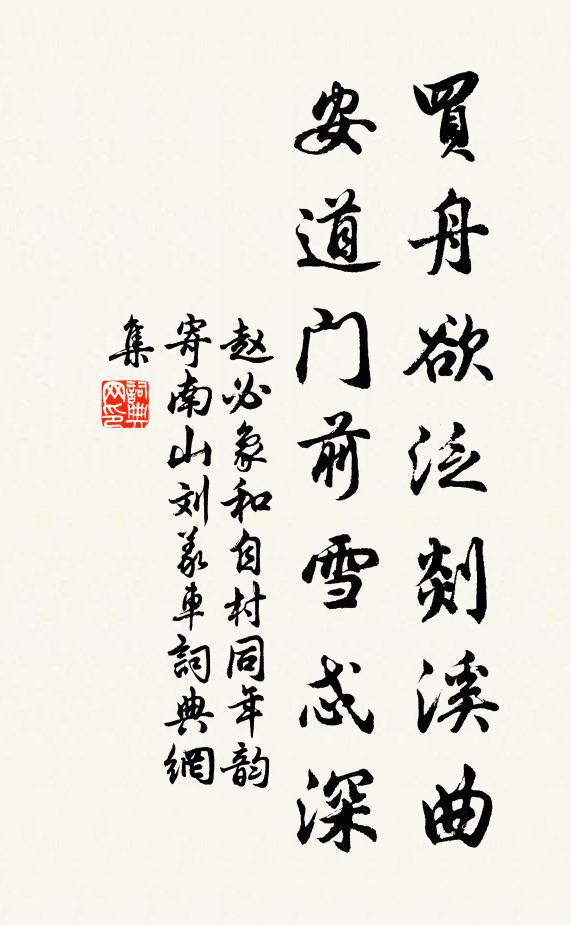 買舟欲泛剡溪曲
安道門前雪忒深
赵必象和自村同年韵
寄南山刘義車詞典網
集
詞典網印